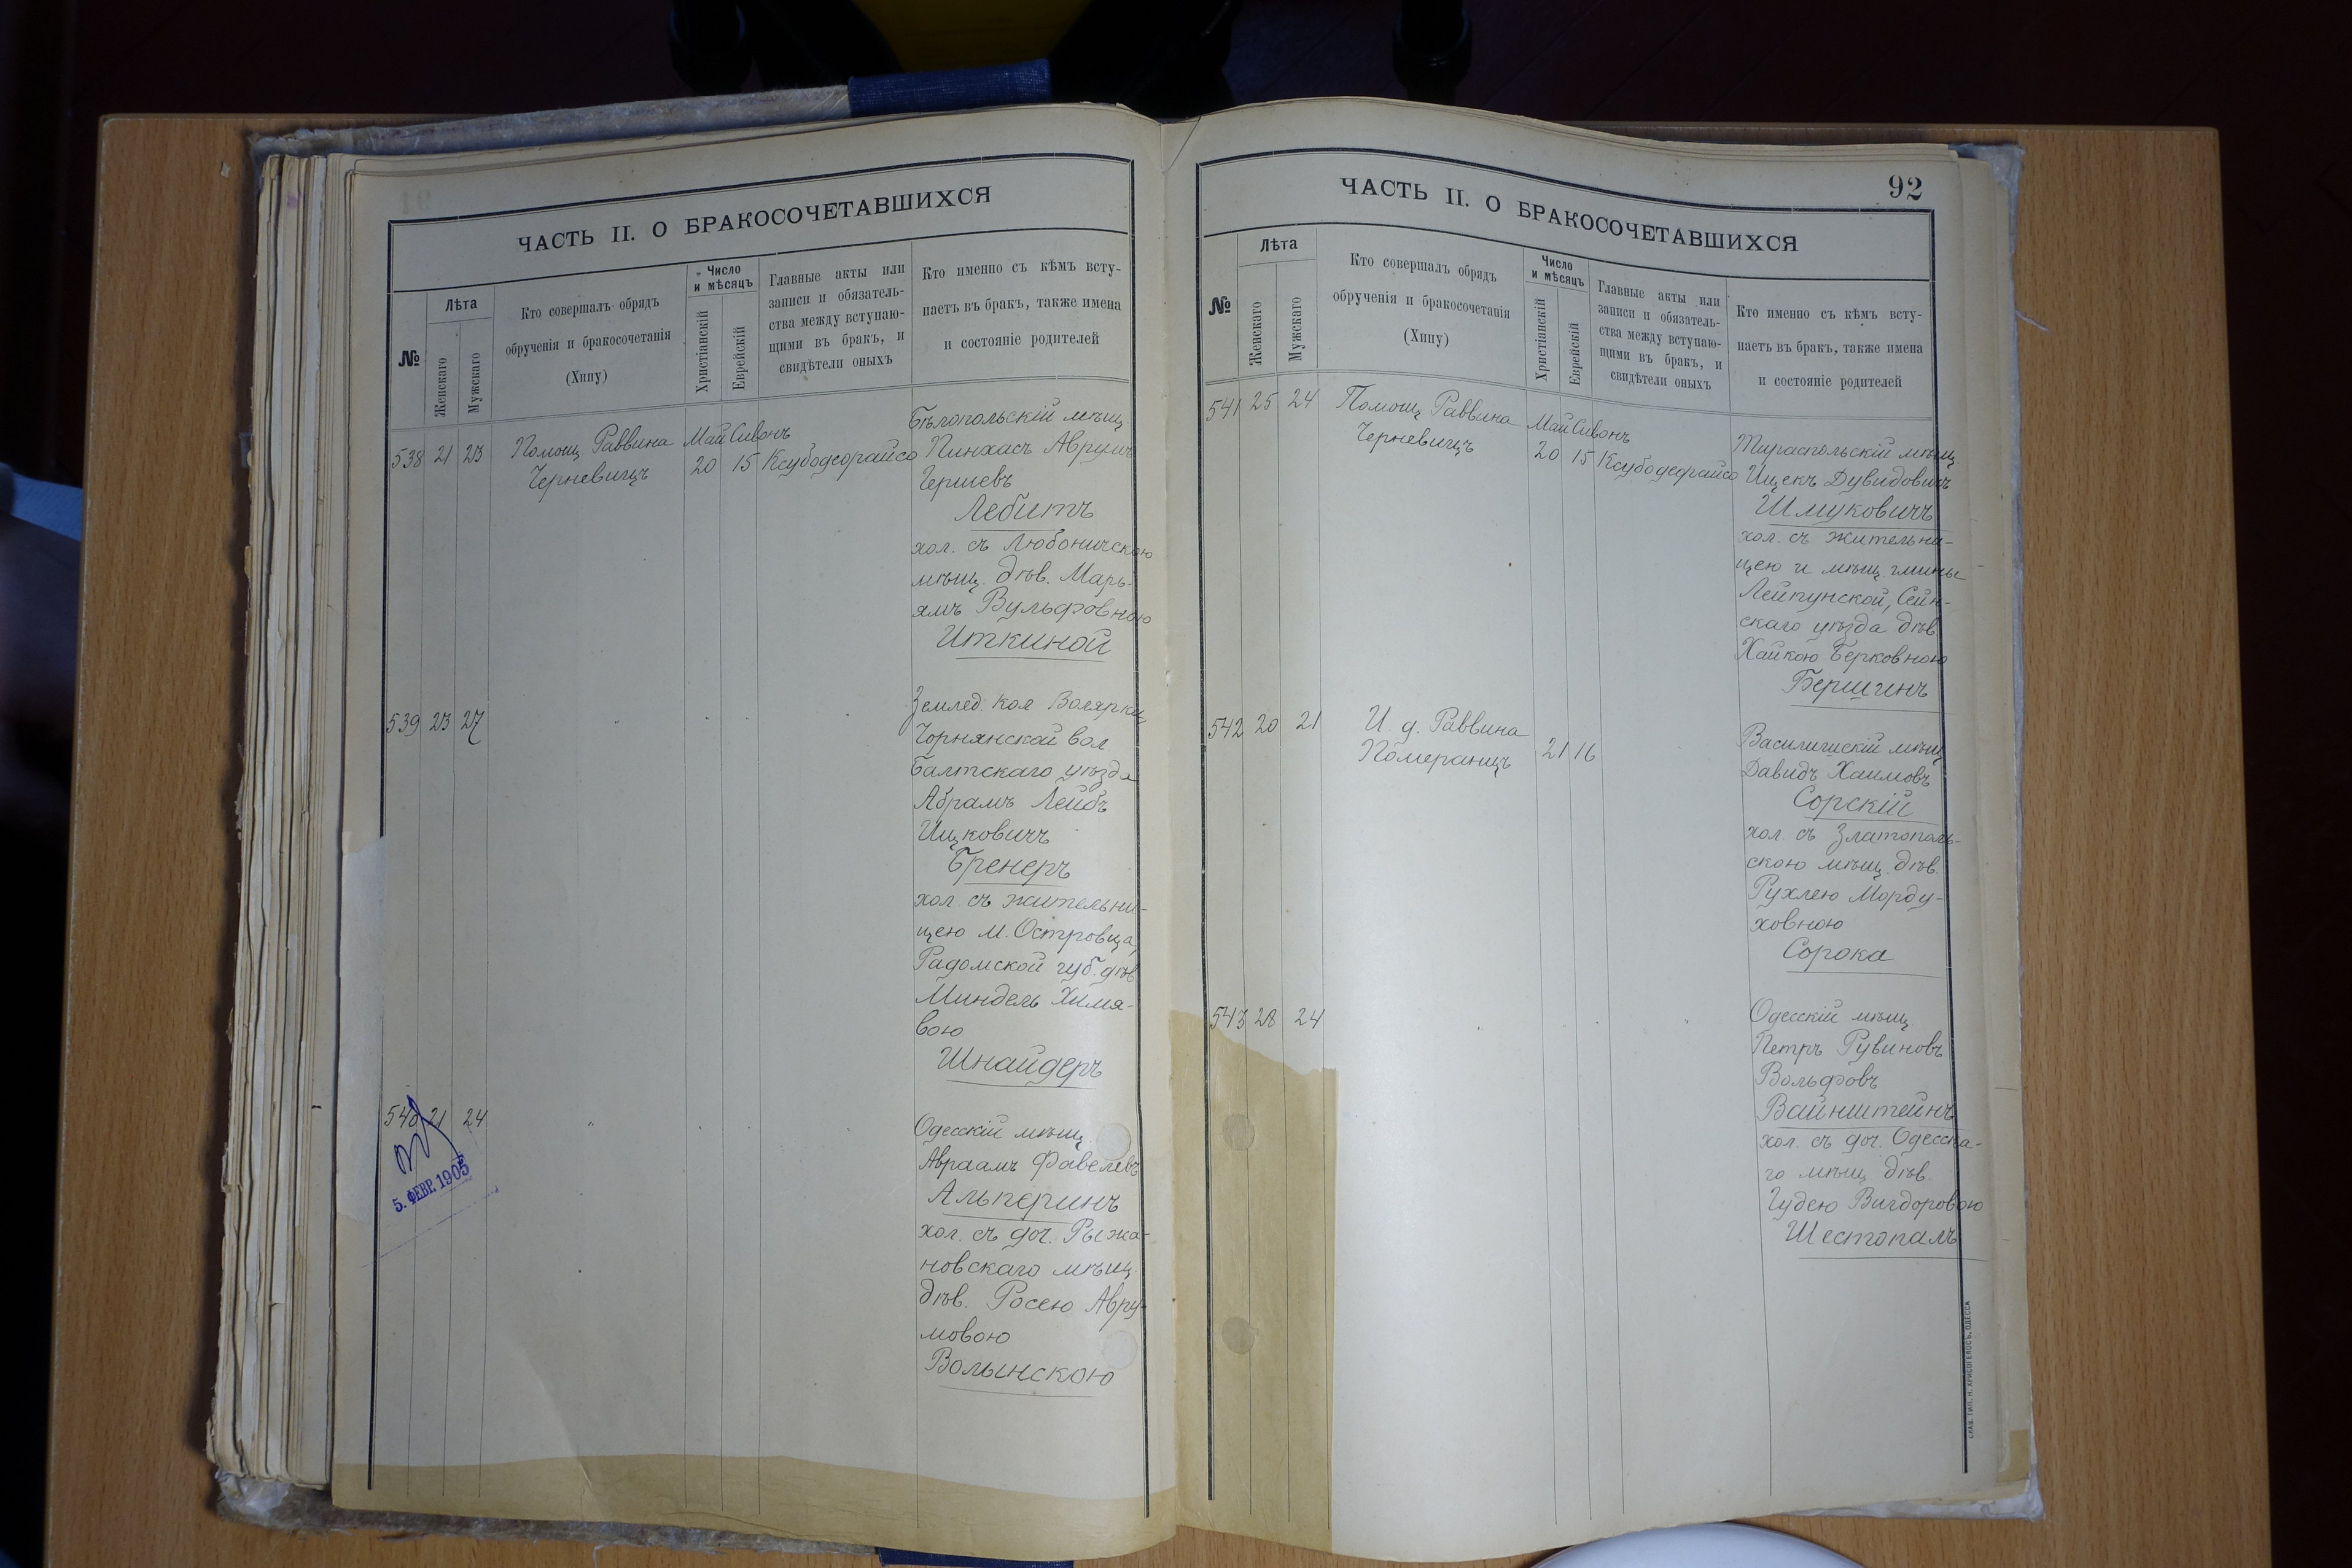 ЧАСТЬ II. О БРАКОСОЧЕТАВШИХСЯ
№
Лѣта
Женскаго
Мужскаго
Кто совершалъ обрядъ
обрученія и бракосочетанія
(Хипу)
Число
и мѣсяцъ
Христіанскій
Еврейскій
Главные акты или
записи и обязатель-
ства между вступаю-
щими въ бракъ, и
свидѣтели оныхъ
Кто именно съ кѣмъ всту-
паетъ въ бракъ, также имена
и состояніе родителей
538 21 23
Помощ. Раввина
Черневицъ
Май Сивонъ
20 15
Ксубодеорайсо
Бѣлопольскій мѣщ
Пинхасъ Аврумъ
Гершевъ
Лебитъ
хол. съ Любоничскою
мѣщ. дѣв. Марь-
ямъ Вульфовною
Иткиной
539 23 27
Землед. кол
Чорнянской вол
Балтскаго уѣзда
Абрамъ Лейбъ
Ицковичъ
Бренеръ
хол. съ жительни-
цею м. Островца,
Радомской губ. дѣв
Миндель Химя-
вою
Шнайдеръ
540 21 24
5. ФЕВР. 1905
Одесскій мѣщ.
Авраамъ Фавелевъ
Альперинъ
хол. съ доч. Рыжа-
новскаго мѣщ.
дѣв. Росею Авру-
мовою
Волынскою
92
ЧАСТЬ II. О БРАКОСОЧЕТАВШИХСЯ
№
Лѣта
Женскаго
Мужскаго
Кто совершалъ обрядъ
обрученія и бракосочетанія
(Хипу)
Число
и мѣсяцъ
Христіанскій
Еврейскій
Главные акты или
записи и обязатель-
ства между вступаю-
щими въ бракъ, и
свидѣтели оныхъ
Кто именно съ кѣмъ всту-
паетъ въ бракъ, также имена
и состояніе родителей
541 25 24
Помощ. Раввина
Черневицъ
Май Сивонъ
20 15
Ксубодеорайсо
Тираспольскій мѣщ
Ицекъ Дувидовичъ
Шмуковичъ
хол. съ жительни-
цею и мѣщ. гмины
Лейпунской, Сейн-
скаго уѣзда дѣв.
Хайкою Берковною
Бершинъ
542 20 21
И. д. Раввина
Померанцъ
21 16
Василишскій мѣщ
Давидъ Хаимовъ
Сорскій
хол. съ Златополь-
скою мѣщ. дѣв.
Рухлею Морду-
ховною
Сорока
543 28 24
Одесскій мѣщ
Петръ Рувиновъ
Вольфовъ
Вайнштейнъ
хол. съ доч. Одесска-
го мѣщ. дѣв.
Гудею Вигдоровою
Шестопалъ
СЛАВ. ТИП. Н. ХРИСОГЕЛОСЪ, ОДЕССА